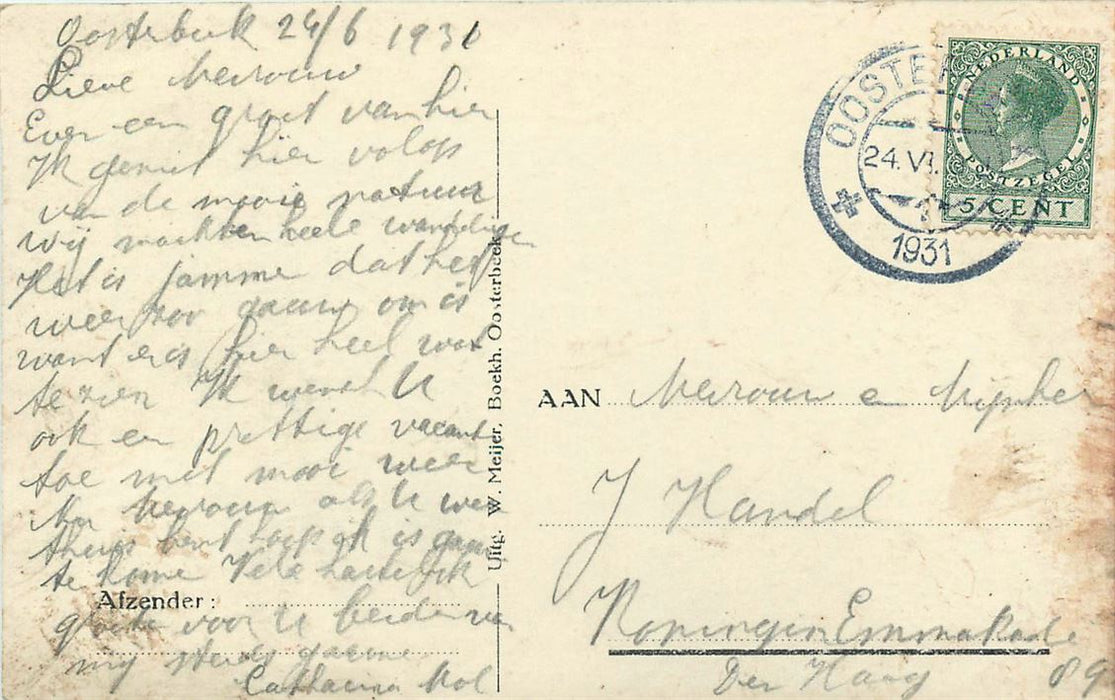 Oosterbeek 24/6 1931
Lieve Mevrouw
Even een groet van hier
Ik geniet hier volop
van de mooie natuur
wij maakten heele wandelingen
Het is jamme dat het
weer zoo gauw om is
want er is hier heel wat
te zien Ik wensch U
ook een prettige vacant
toe met mooi weer
Nu Mevrouw als U weer
thuis bent hoop ik is gauw
te kome Vele hartelijk
groete voor U beide van
mij steeds gaarne
Catharina Mol
Afzender:
Uitg. W. Meijer, Boekh. Oosterbeek
OOSTERB
24.VI.
1931
NEDERLAND
POSTZEGEL
5 CENT
AAN Mevrouw en Mijnheer
J Handel
Koningin Emmakade
Den Haag 89